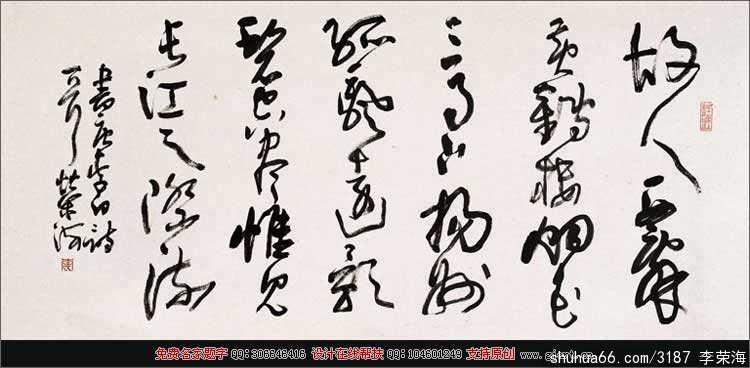 故人西辞
黄鹤楼烟花
三月下扬州
孤帆远影
碧空尽惟见
长江天际流
书唐李白诗
荣海
免费名家题字 QQ:306646416 设计在线帮扶 QQ:104601249 支持原创
shuhua66.com/3187 李荣海